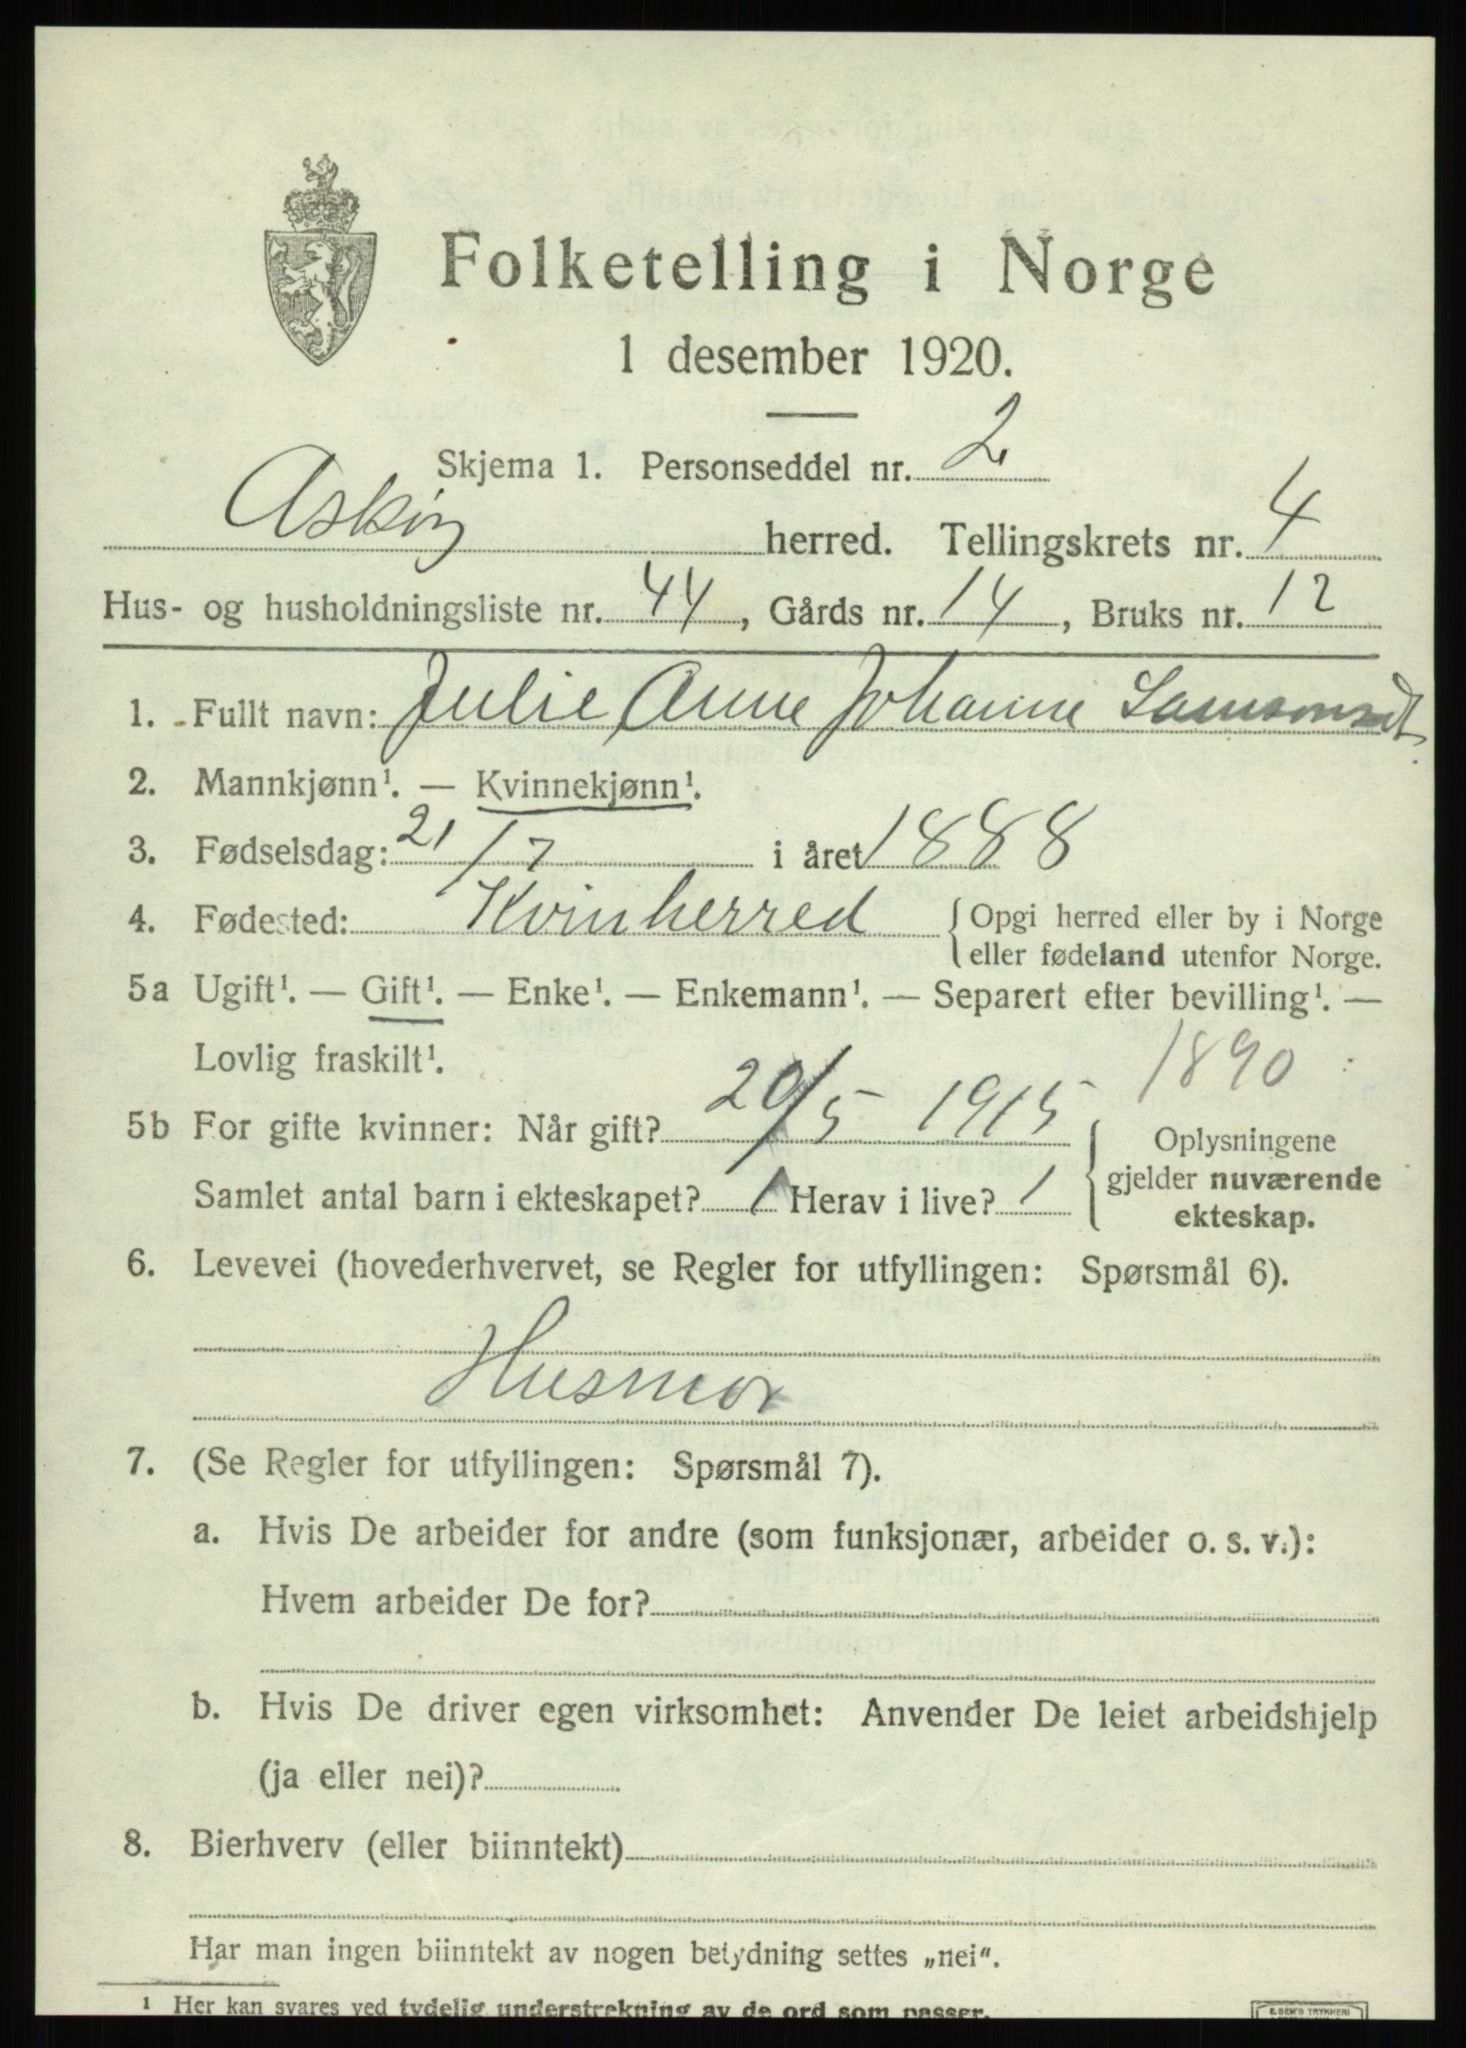 Folketelling i Norge
1 desember 1920.
Skjema 1. Personseddel nr. 2
Askøy herred. Tellingskrets nr. 4
Hus- og husholdningsliste nr. 44, Gårds nr. 14, Bruks nr. 12
1. Fullt navn: Julie Anne Johanne
2. Mannkjønn¹. — Kvinnekjønn¹.
3. Fødselsdag: 21/7 i året 1888
4. Fødested: Kvinherred {Opgi herred eller by i Norge
eller fødeland utenfor Norge.
5a Ugift¹. — Gift¹. — Enke¹. — Enkemann¹. — Separert efter bevilling¹. —
Lovlig fraskilt¹. 1890
5b For gifte kvinner: Når gift? 20/5 1915 {Oplysningene
gjelder nuværende
ekteskap.
Samlet antal barn i ekteskapet? 1 Herav i live? 1
6. Levevei (hovederhvervet, se Regler for utfyllingen: Spørsmål 6).
Husmor
7. (Se Regler for utfyllingen: Spørsmål 7).
a. Hvis De arbeider for andre (som funksjonær, arbeider o. s. v.):
Hvem arbeider De for?
b. Hvis De driver egen virksomhet: Anvender De leiet arbeidshjelp
(ja eller nei)?
8. Bierhverv (eller biinntekt)
Har man ingen biinntekt av nogen betydning settes „nei".
¹ Her kan svares ved tydelig understrekning av de ord som passer.